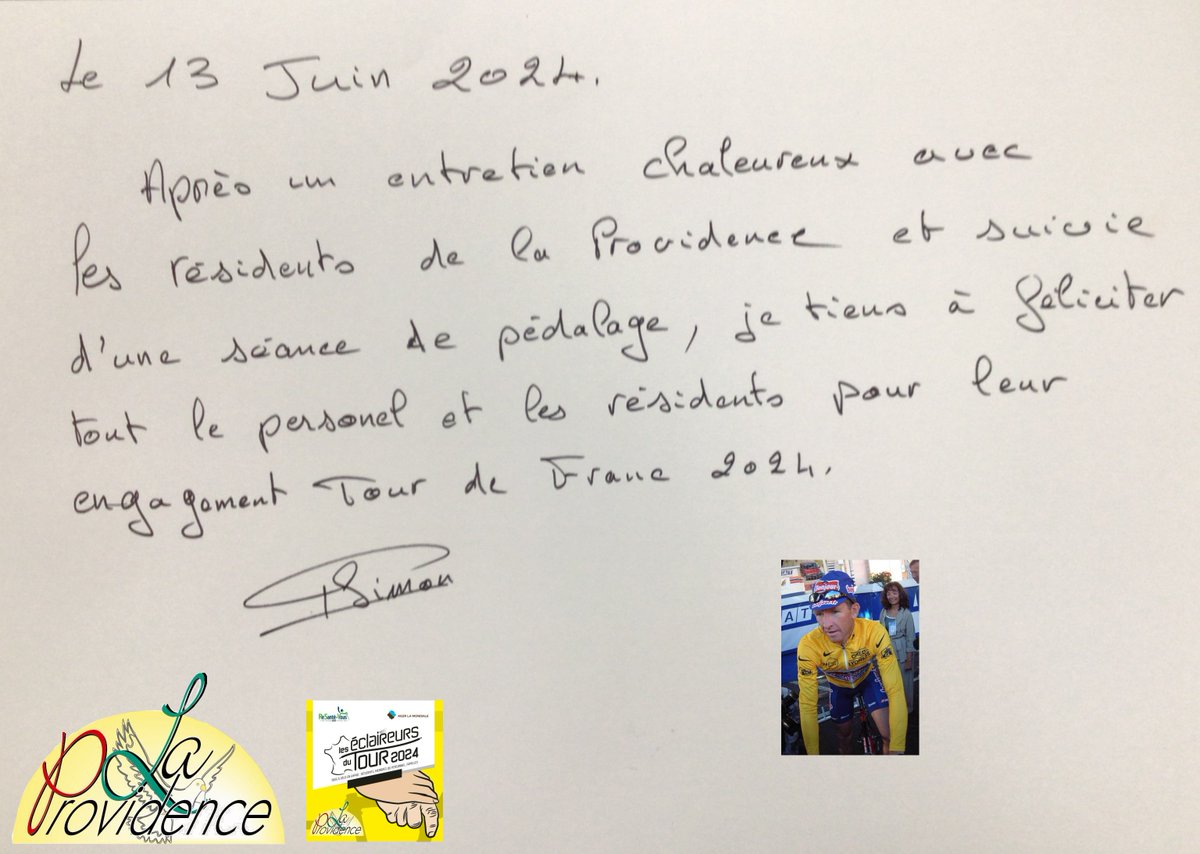 Le 13 Juin 2024.
Après un entretien chaleureux avec
les résidents de la Providence et suivie
d'une séance de pédalage, je tiens à féliciter
tout le personel et les résidents pour leur
engagement Tour de Franc 2024.
Simon
La
Providence
ReSanté-Vous
AG2R LA MONDIALE
les éclaireurs
du TOUR 2024
La
Providence